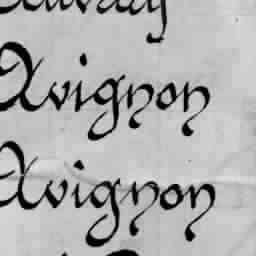 Avignon
Avignon